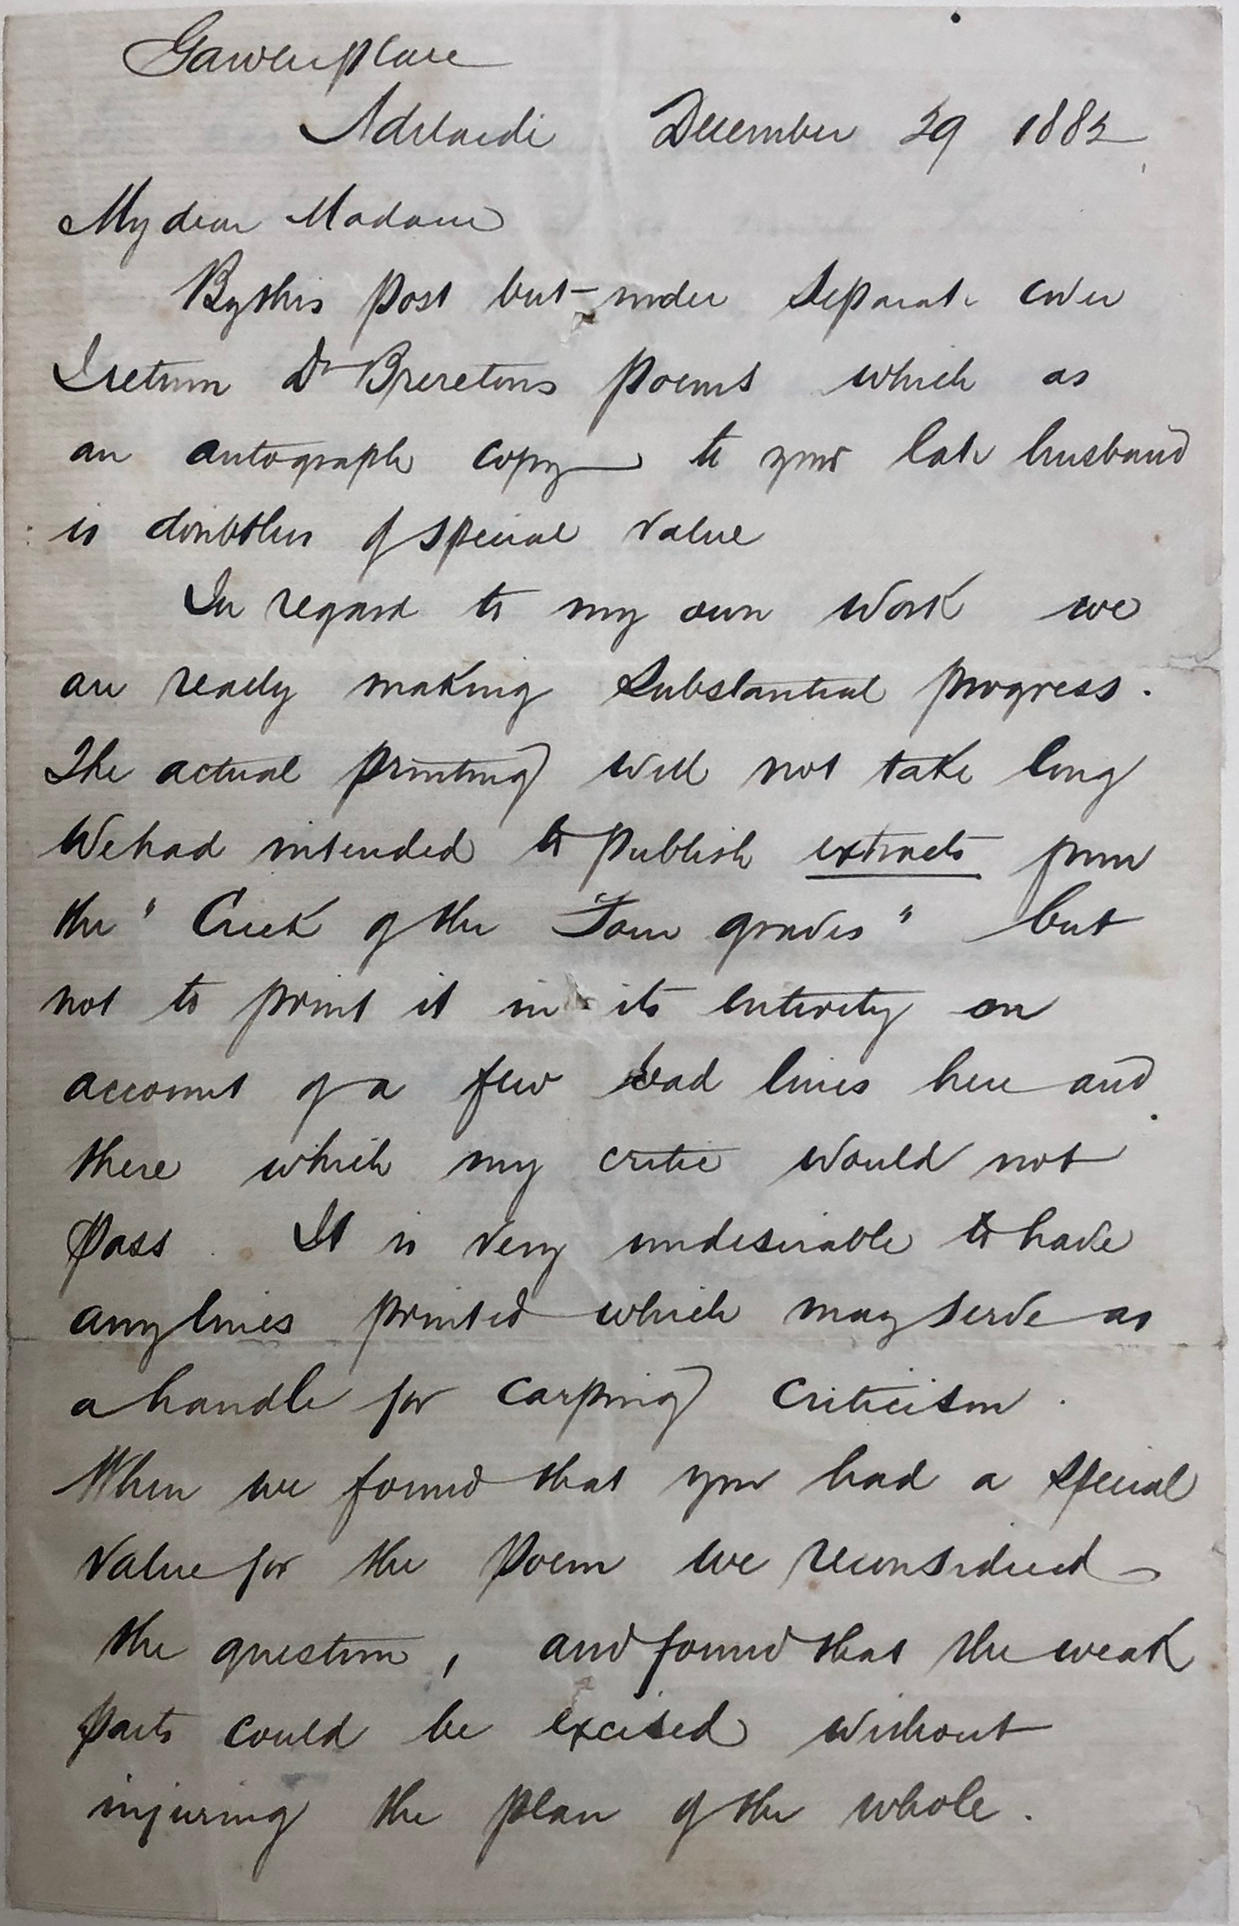 Gawler place
Adelaide December 29 1882
My dear Madam
By this post but under separate cover
I return Dr Breretons poems which as
an autograph copy to your late husband
is doubtless of special value
In regard to my own work we
are really making substantial progress.
The actual printing will not take long
We had intended to publish extracts from
the "Creek of the Four graves" but
not to print it in its entirety on
account of a few bad lines here and
there which my critic would not
pass. It is very undesirable to have
any lines printed which may serve as
a handle for carping criticism.
When we found that you had a special
value for the poem we reconsidered
the question, and found that the weak
parts could be excised without
injuring the plan of the whole.